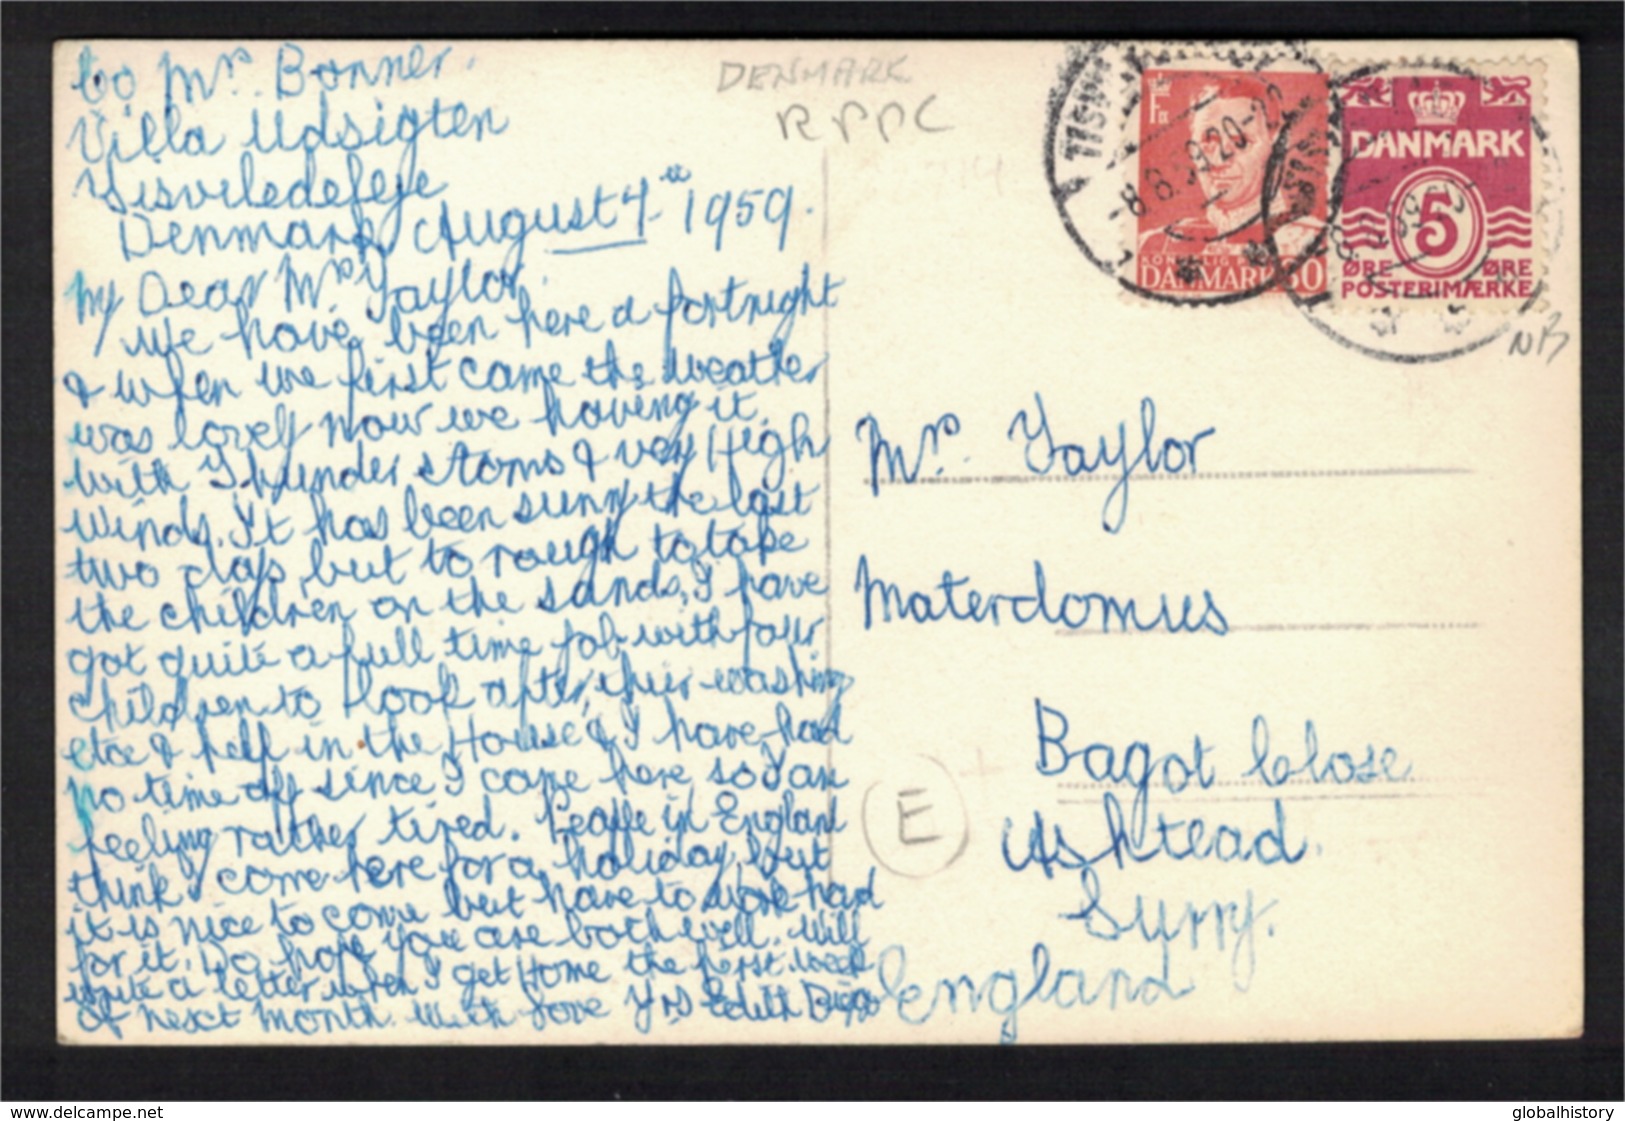 c/o Mrs. Bonner.
Villa Udsigten
Tisvildeleje
Denmark August 4th 1959.
My Dear Mrs Taylor
We have been here a fortnight
& when we first came the weather
was lovely now we having it
with Thunder stoms & very High
winds. It has been sunny the last
two days, but to rough to take
the children on the sands. I have
got quite a full time job with four
children to look after, their washing
etce & help in the House & I have had
no time off since I came here so I am
feeling rather tired. People in England
think I come here for a holiday, but
it is nice to come but have to work hard
for it. Do hope you are both well. Will
write a letter when I get Home the first week
of next month. With love Yrs Edith Biggs
DENMARK
RPPC
DANMARK 30
DANMARK
5
ØRE ØRE
POSTERIMÆRKE
NB
Mrs. Taylor
Materdomus
Bagot Close
Ashtead.
Surry.
England
E
www.delcampe.net
globalhistory